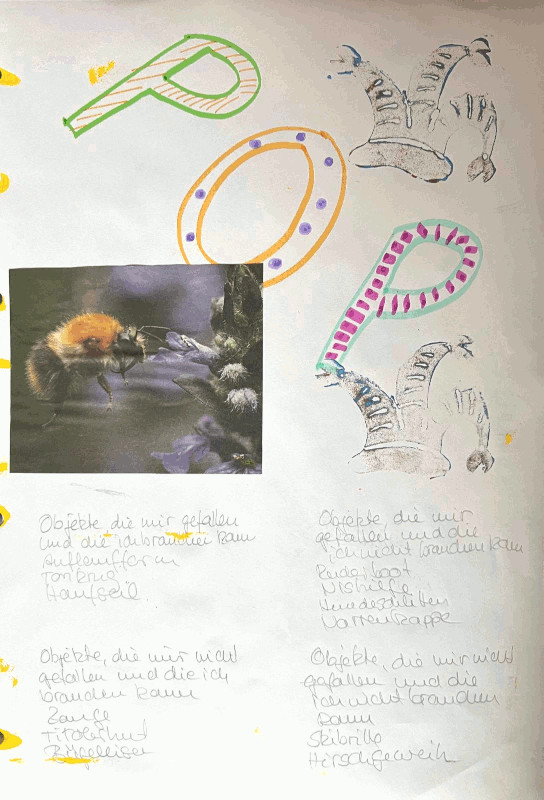 POP
Objekte, die mir gefallen
und die ich brauchen kann
Tonkrug
Hanfseil
Objekte, die mir
gefallen und die
ich nicht brauchen kann
Ruderboot
Nisthilfe
Hundeschlitten
Narrenkappe
Objekte, die mir nicht
gefallen und die ich
brauchen kann
Zange
Bügeleisen
Objekte, die mir nicht
gefallen und die
ich nicht brauchen
kann
Skibrille
Hirschgeweih